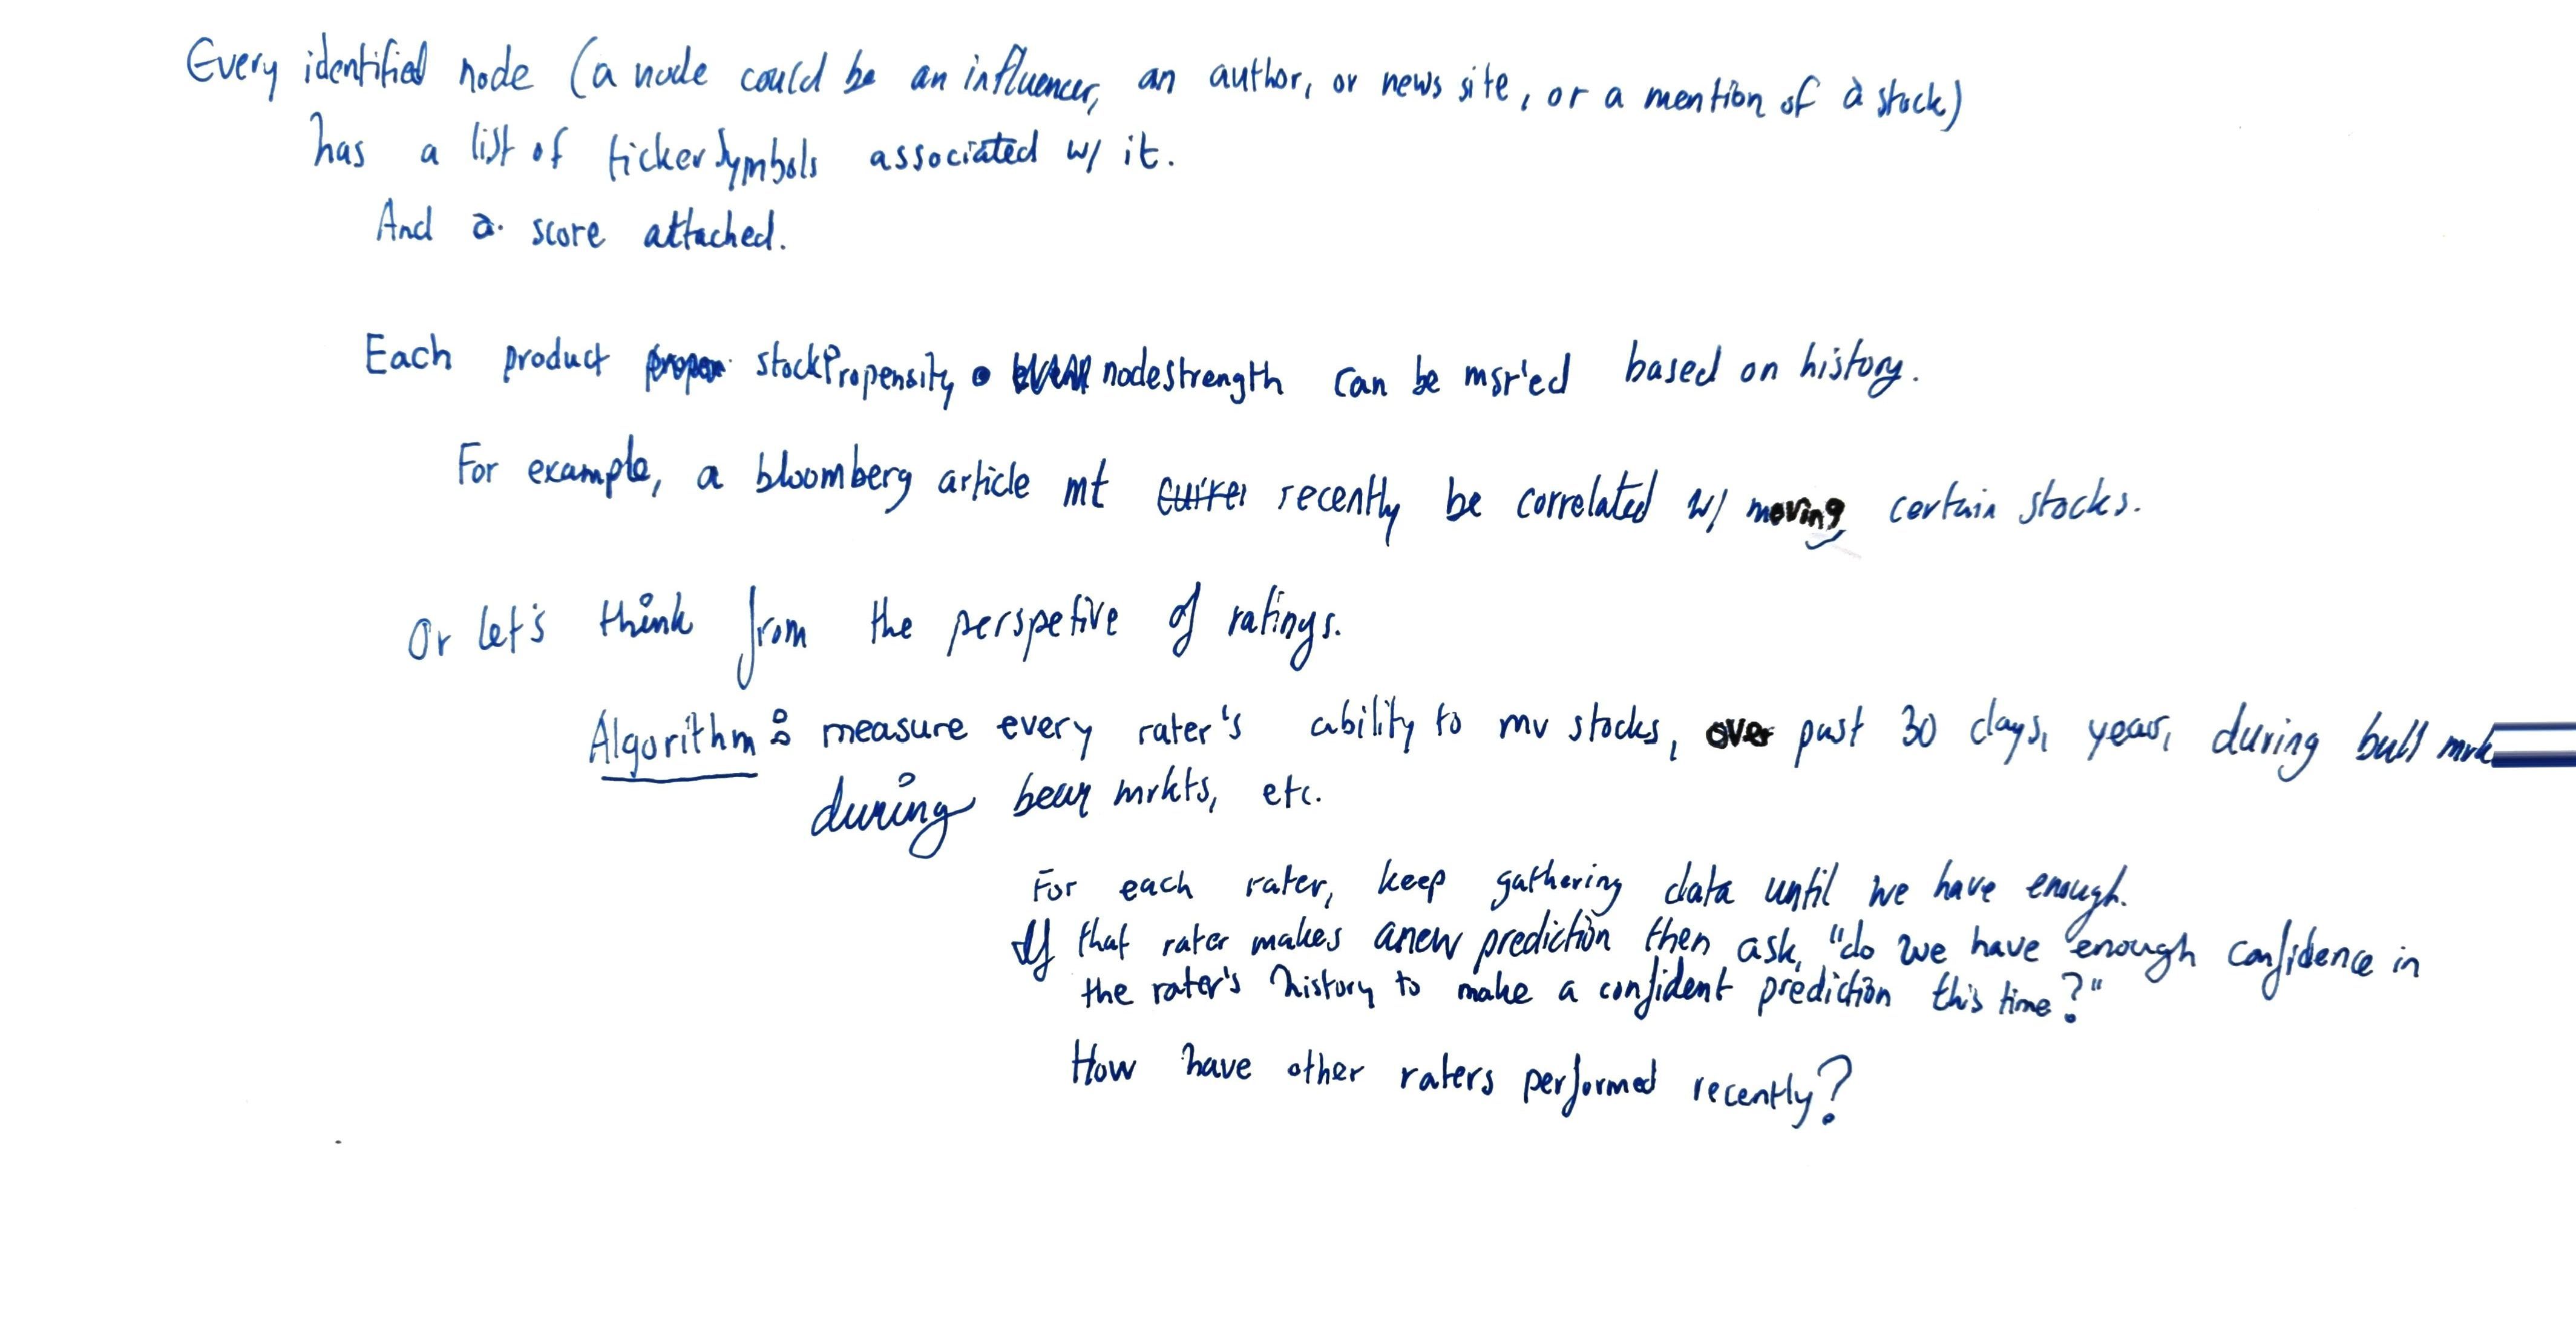 Every identified node (a node could be an influencer, an author, or news site, or a mention of a stock)
has a list of tickerSymbols associated w/ it.
And a score attached.
Each product stockPropensity • nodestrength can be msr'ed based on history.
For example, a bloomberg article mt recently be correlated w/ moving certain stocks.
Or let's think from the perspetive of ratings.
Algorithm: measure every rater's ability to mv stocks, over past 30 days, year, during bull
during bear mrkts, etc.
For each rater, keep gathering data until we have enough.
If that rater makes a new prediction then ask, "do we have enough confidence in
the rater's history to make a confident prediction this time?"
How have other raters performed recently?